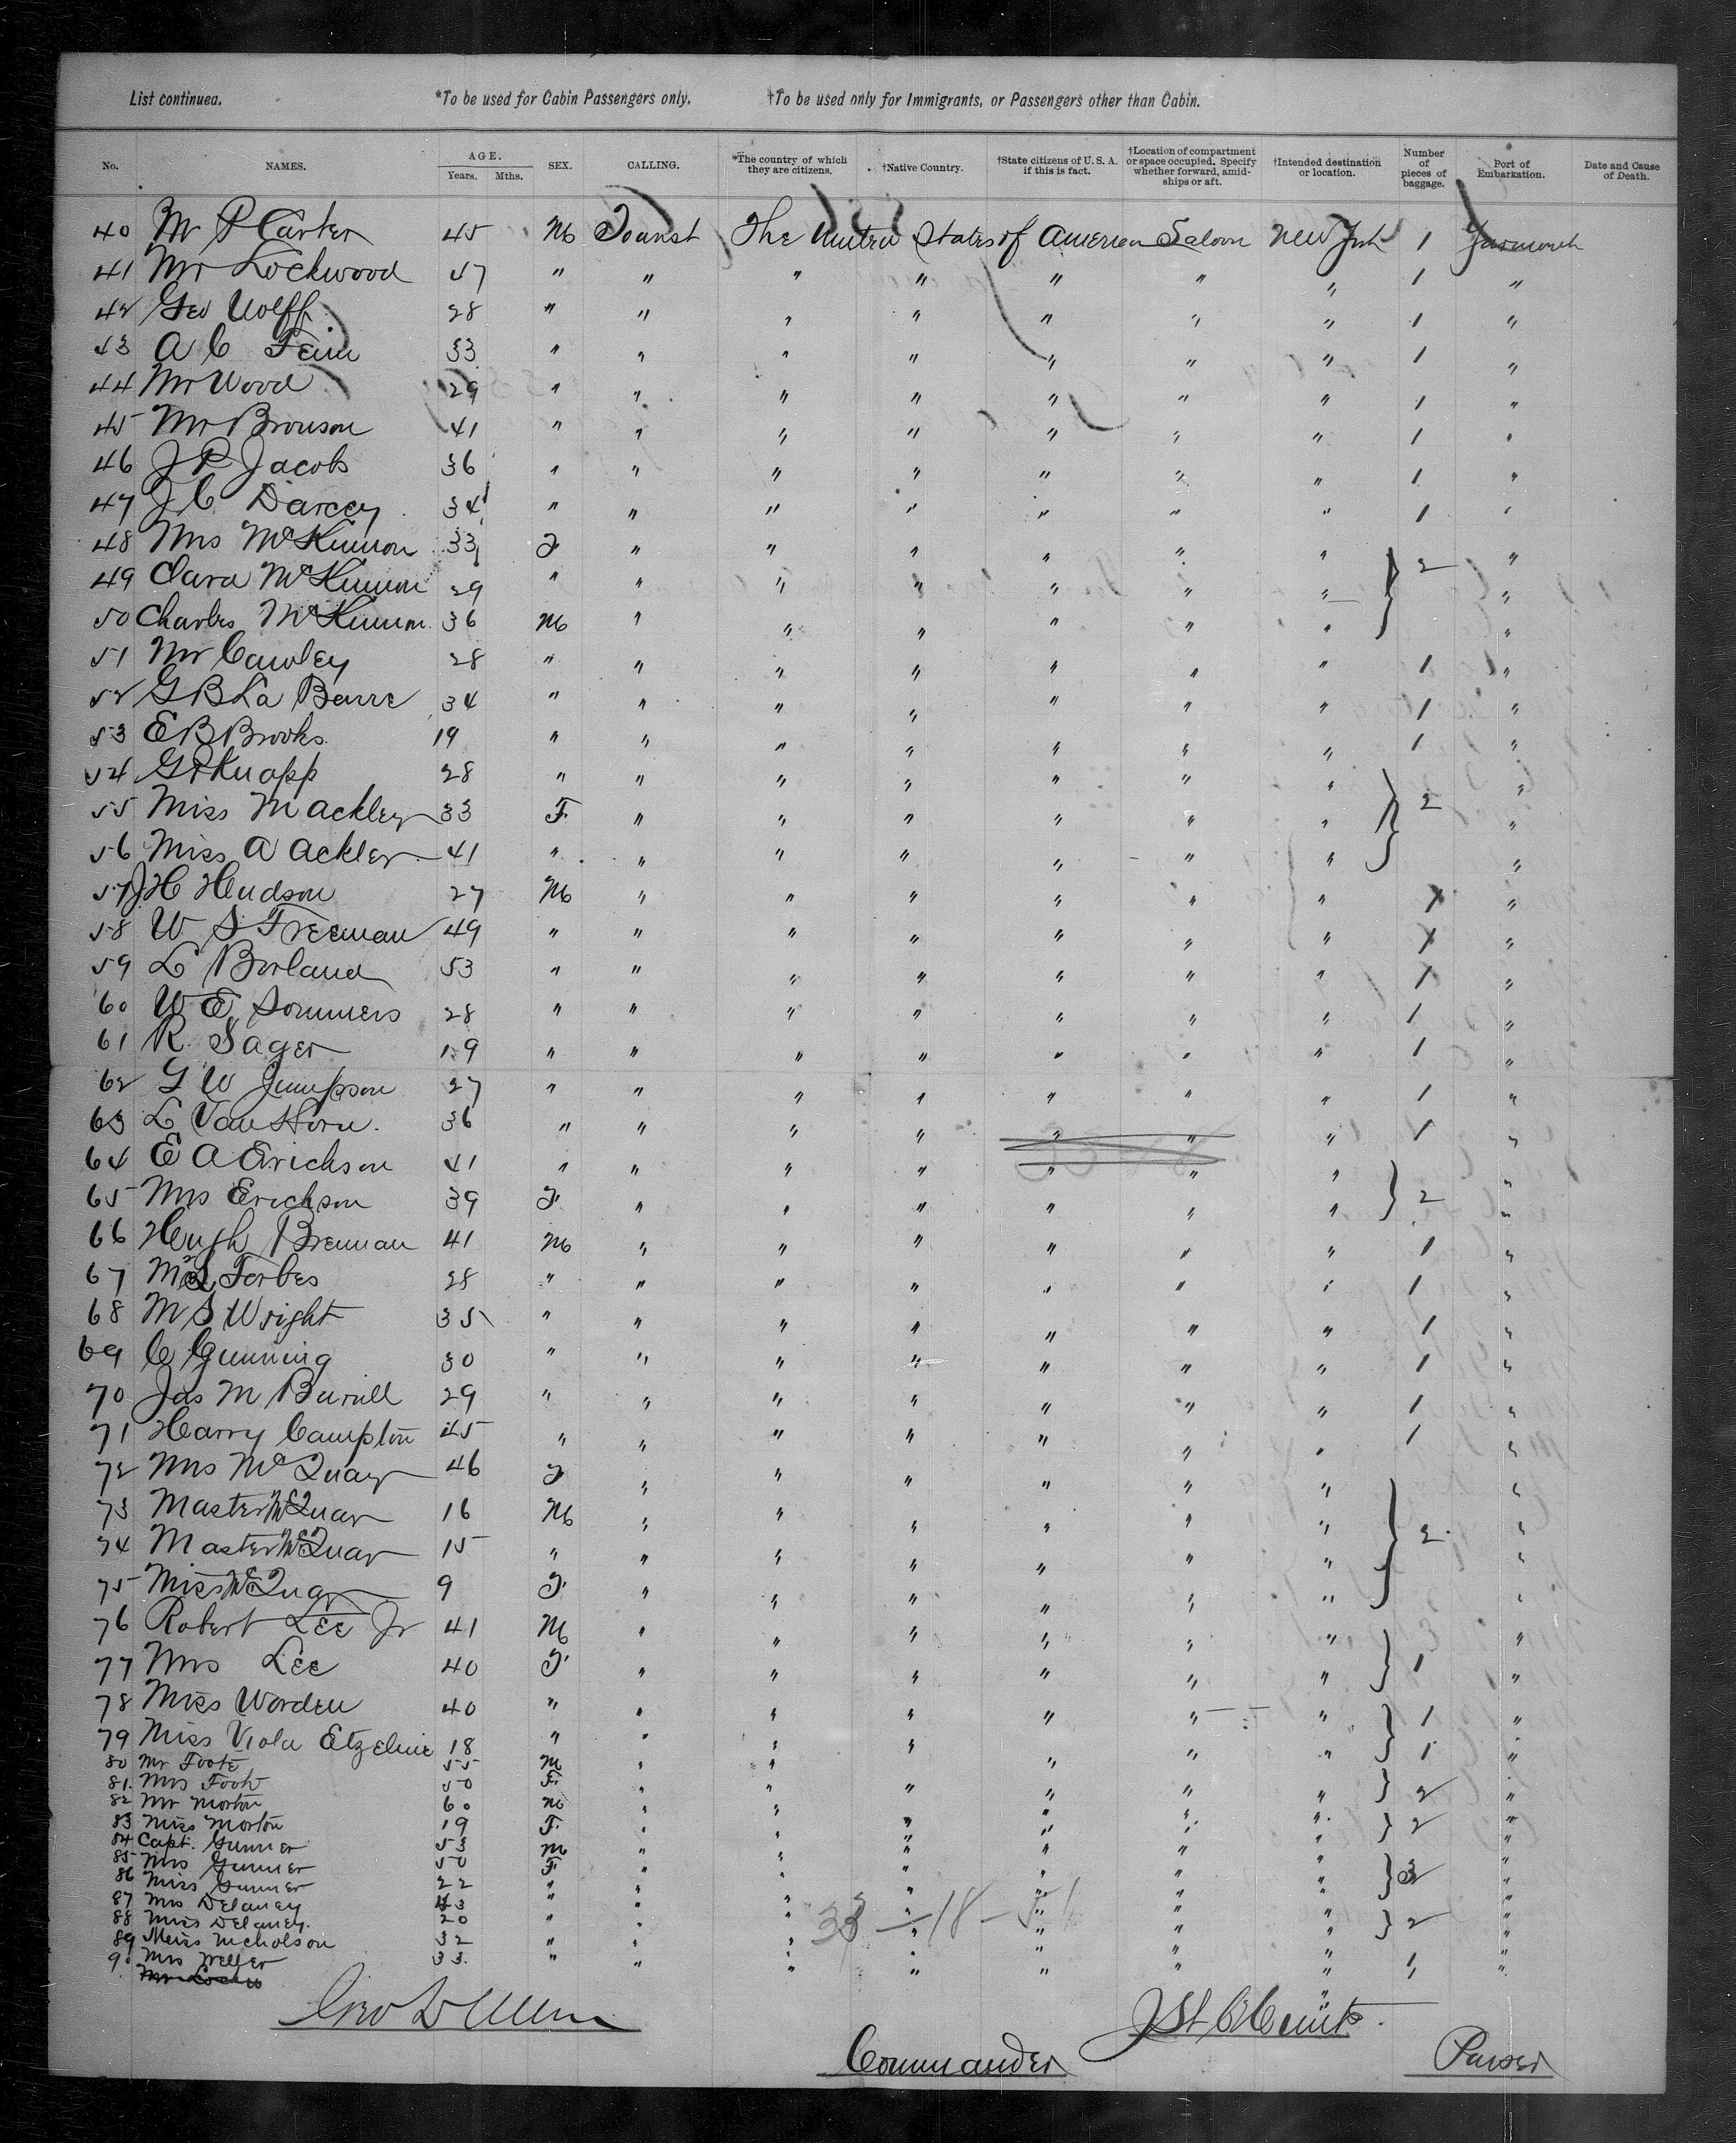 List continued. *To be used for Cabin Passengers only. †To be used only for Immigrants, or Passengers other than Cabin.
No. NAMES. AGE. Years. Mths. SEX. CALLING. *The country of which they are citizens. †Native Country. †State citizens of U. S. A. if this is fact. †Location of compartment or space occupied. Specify whether forward, amidships or aft. †Intended destination or location. Number of pieces of baggage. Port of Embarkation. Date and Cause of Death.
40 Mr P Carter 45 M Tourist The United States of America Saloon New York 1 Yarmouth
41 Mr Lockwood 47 " " " " " " " 1 "
42 Geo Wolff 28 " " " " " " " 1 "
43 A C 33 " " " " " " " 1 "
44 Mr Wood 29 " " " " " " " 1 "
45 Mr Bronson 41 " " " " " " " 1 "
46 J P Jacobs 36 " " " " " " " 1 "
47 J C Darcey 34 " " " " " " " 1 "
48 Mrs McKinnon 33 F " " " " " " } 2 "
49 Clara McKinnon 29 " " " " " " " "
50 Charles McKinnon 36 M " " " " " " "
51 Mr Cawley 28 " " " " " " " 1 "
52 G B La Barre 34 " " " " " " " 1 "
53 E B Brooks 19 " " " " " " " 1 "
54 G P Knapp 28 " " " " " " " "
55 Miss M Ackley 33 F. " " " " " " } 2 "
56 Miss A Ackler 41 " " " " " " " "
57 J H Hudson 27 M " " " " " " 1 "
58 W S Freeman 49 " " " " " " " 1 "
59 L Borland 53 " " " " " " " 1 "
60 W E Sommers 28 " " " " " " " 1 "
61 R Sager 19 " " " " " " " 1 "
62 G W Jumpson 27 " " " " " " " 1 "
63 L Van Horn. 36 " " " " " " " 1 "
64 E A Erickson 41 " " " " " " " "
65 Mrs Erickson 39 F " " " " " " } 2 "
66 Hugh Brennan 41 M " " " " " " 1 "
67 Forbes 28 " " " " " " " 1 "
68 M S Wright 35 " " " " " " " 1 "
69 C Gunning 30 " " " " " " " 1 "
70 Jas M Burrill 29 " " " " " " " 1 "
71 Harry Campton 45 " " " " " " " 1 "
72 Mrs McQuay 46 F " " " " " " "
73 Master McQuay 16 M " " " " " " } 2 "
74 Master McQuay 15 " " " " " " " "
75 Miss McQuay 9 F " " " " " " "
76 Robert Lee Jr 41 M " " " " " " "
77 Mrs Lee 40 F " " " " " " } 1 "
78 Miss Worden 40 " " " " " " " } 1 "
79 Miss Viola Etzeline 18 " " " " " " " 1 "
80 Mr Foote 55 M " " " " " " "
81. Mrs Foote 50 F. " " " " " " } 2 "
82 Mr Morton 60 M " " " " " " "
83 Miss Morton 19 F. " " " " " " } 2 "
84 Capt. Gunner 53 M " " " " " " "
85 Mrs Gunner 50 F " " " " " " } 3 "
86 Miss Gunner 22 " " " " " " " "
87 Mrs Delaney 43 " " " " " " " "
88 Miss Delaney. 20 " " " " " " " } 2 "
89 Miss Nicholson 32 " " " " " " " "
90 Mrs Weller 33. " " " " " " " 1 "
33 - 18 - 51
Commander
Purser